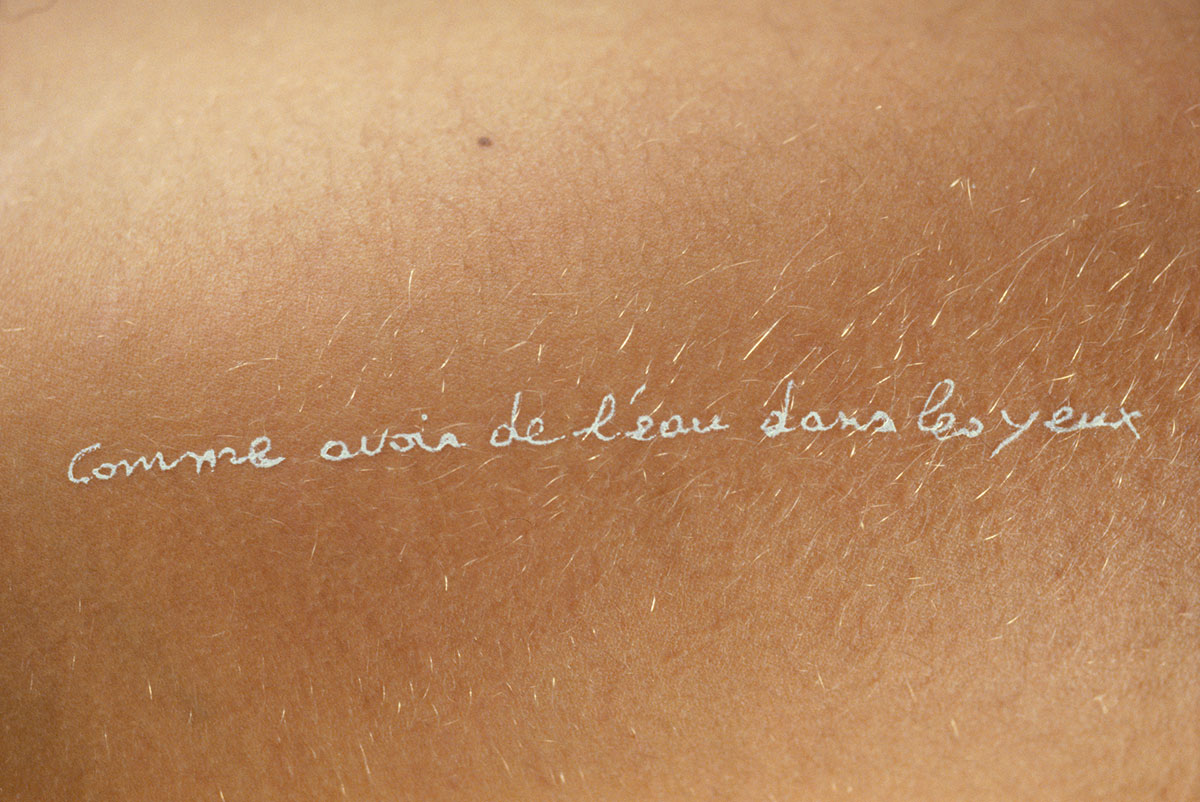 Comme avoir de l'éau dans les yeux